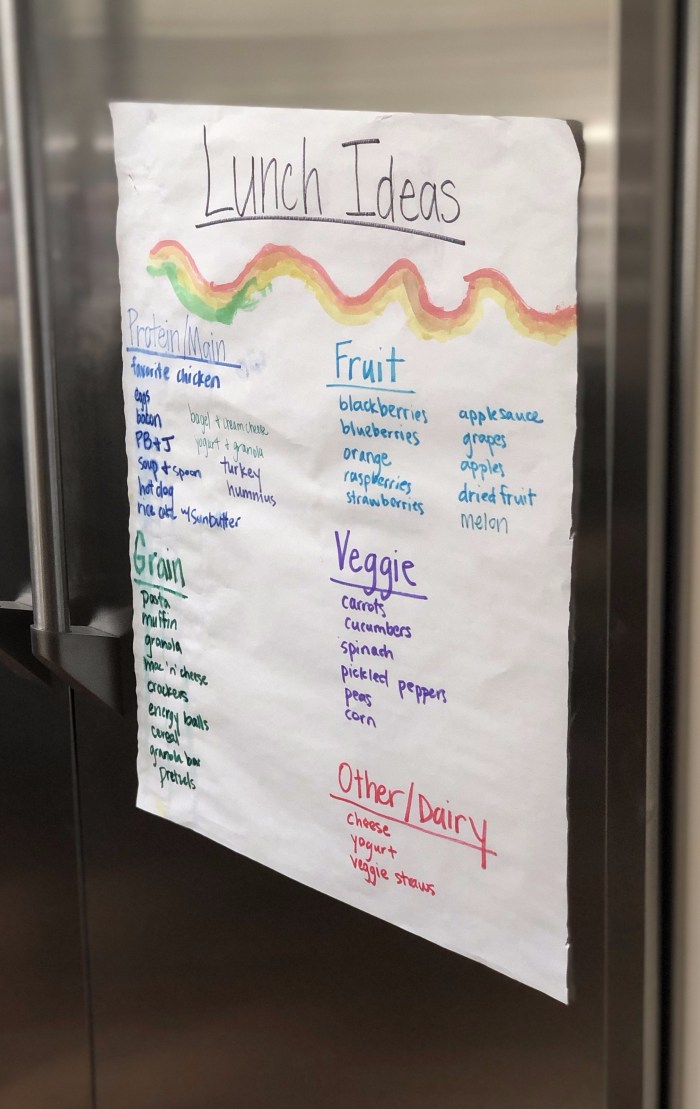 Lunch Ideas
Protein/Main
favorite chicken
eggs
bacon
PB+J
soup + spoon
hot dog
rice cake w/Sunbutter
bagel + cream cheese
yogurt + granola
turkey
hummus
Grain
pasta
muffin
granola
mac 'n' cheese
crackers
energy balls
cereal
granola bar
pretzels
Fruit
blackberries
blueberries
orange
raspberries
strawberries
applesauce
grapes
apples
dried fruit
melon
Veggie
carrots
cucumbers
spinach
pickled peppers
peas
corn
Other/Dairy
cheese
yogurt
veggie straws